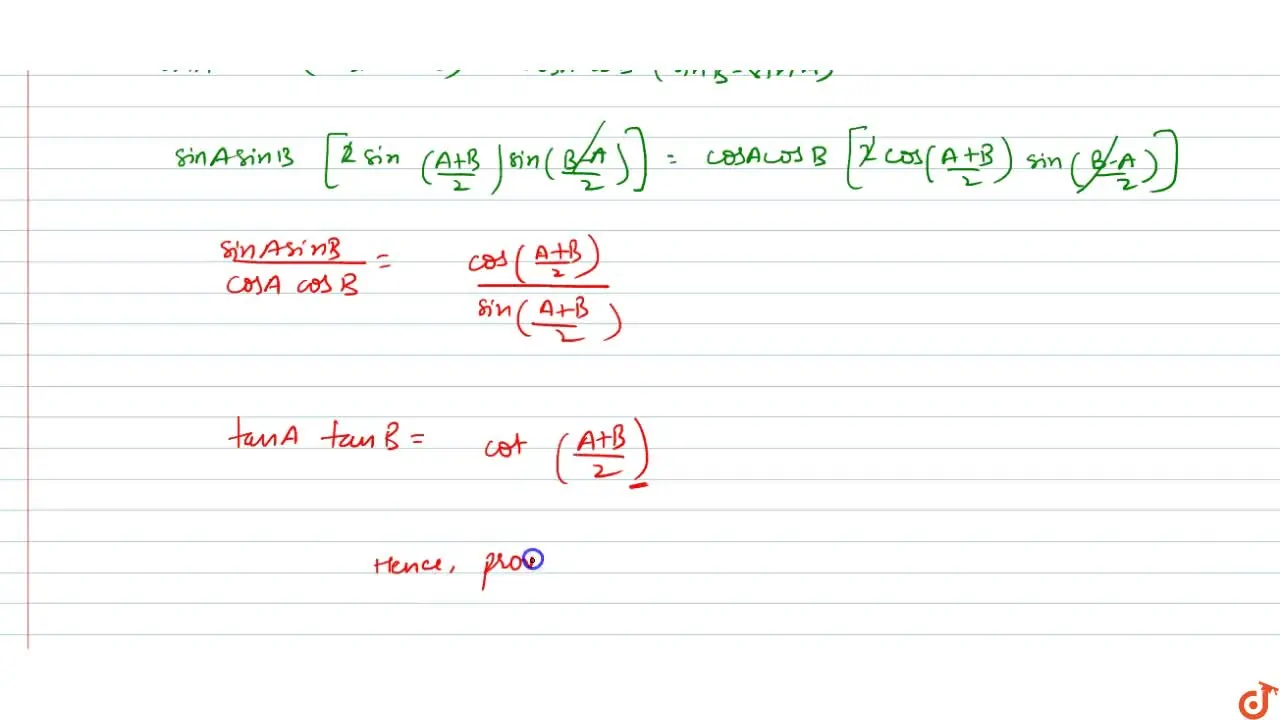 sinA sinB [2 sin (A+B/2) sin(B-A/2)] = cosA cosB [2 cos(A+B/2) sin (B-A/2)]
sinA sinB / cosA cosB = cos(A+B/2) / sin(A+B/2)
tanA tanB = cot (A+B/2)
Hence, prov